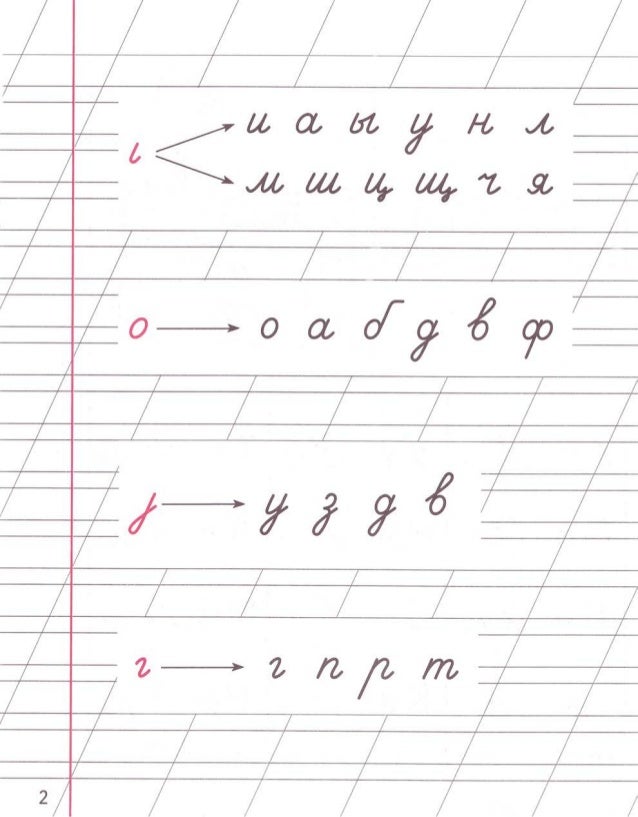 и а ы у н л
ι
м ш ц щ ч я
о о а б д в ф
j у з д в
г г п р т
2